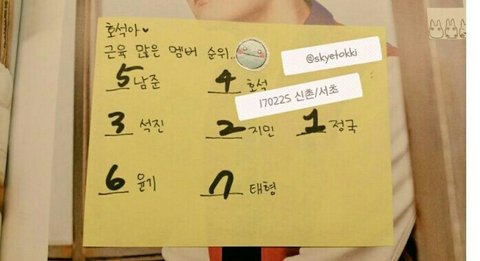 호석아♥
근육 많은 멤버 순위..
@skyetokki
5 남준 4 호석
170225 신촌/서초
3 석진 2 지민 1 정국
6 윤기 7 태형